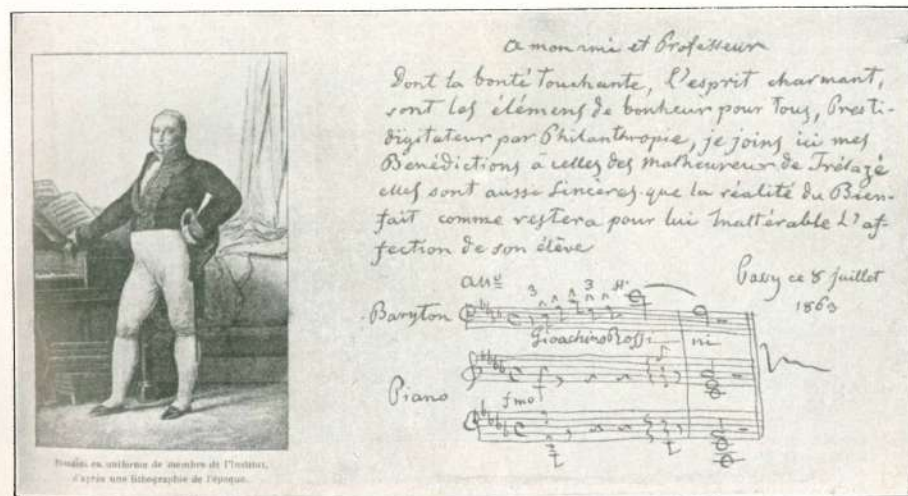 a mon ami et Professeur
Dont la bonté touchante, l'esprit charmant,
sont les élémens de bonheur pour Tous, Presti-
digitateur par Philanthropie, je joins ici mes
Benédictions a celles des malheureux de Trélazé
elles sont aussi Sincères que la réalité du Bien-
fait comme restera pour lui Inaltérable L'af-
fection de son élève
Passy ce 8 juillet
1863
All°
3 3
Baryton
Gioachino Rossi ni
Piano
fmo
Rossini en uniforme de membre de l'Institut,
d'après une lithographie de l'époque.